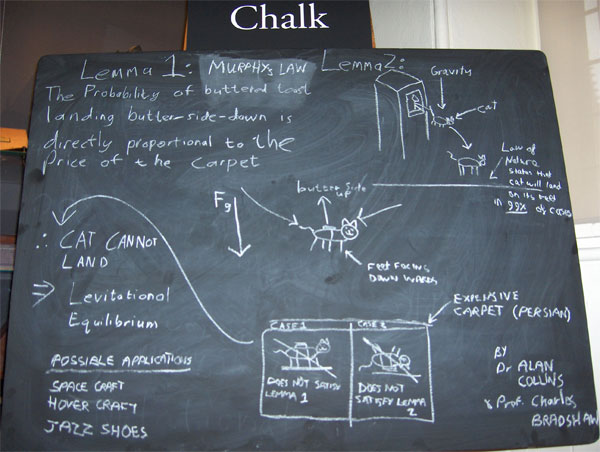 Chalk
Lemma 1: MURPHY'S LAW
The Probability of buttered toast
landing butter-side-down is
directly proportional to the
Price of the Carpet
Lemma 2:
Gravity
cat
Law of
Nature
states that
cat will land
on it's feet
in 99% of cases
butter side
up
Fg
FEET FACING
DOWNWARDS
∴ CAT CANNOT
LAND
⇒ Levitational
Equilibrium
POSSIBLE APPLICATIONS
SPACE CRAFT
HOVER CRAFT
JAZZ SHOES
CASE 1
DOES NOT SATISFY
LEMMA 1
CASE 2
DOES NOT
SATISFY LEMMA
2
EXPENSIVE
CARPET (PERSIAN)
BY
Dr ALAN
COLLINS
& Prof. Charles
BRADSHAW